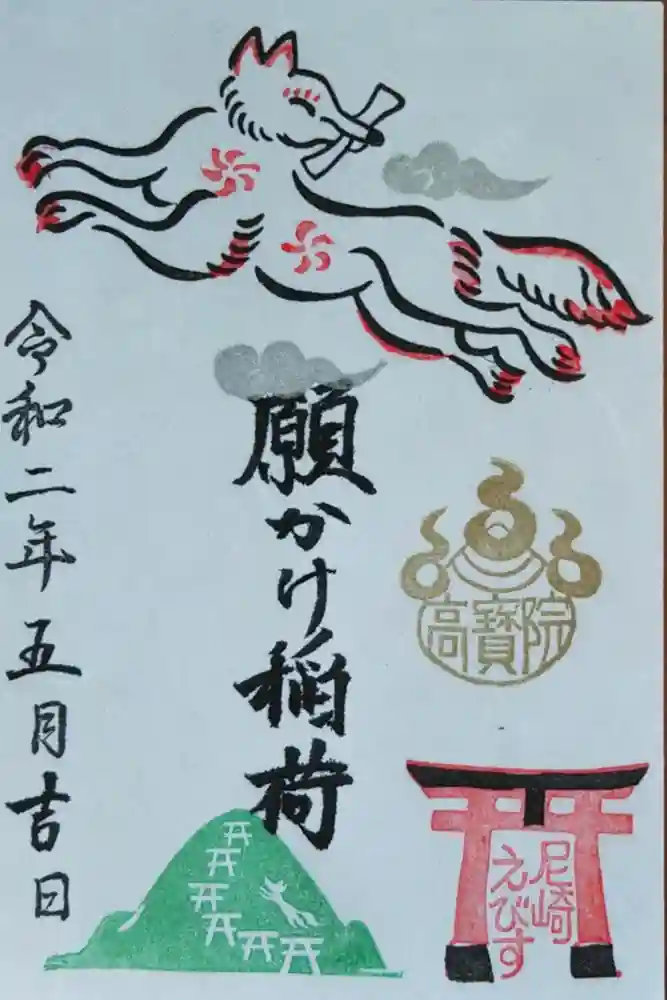 高寳院
尼崎
えびす
願かけ稲荷
令和二年五月吉日